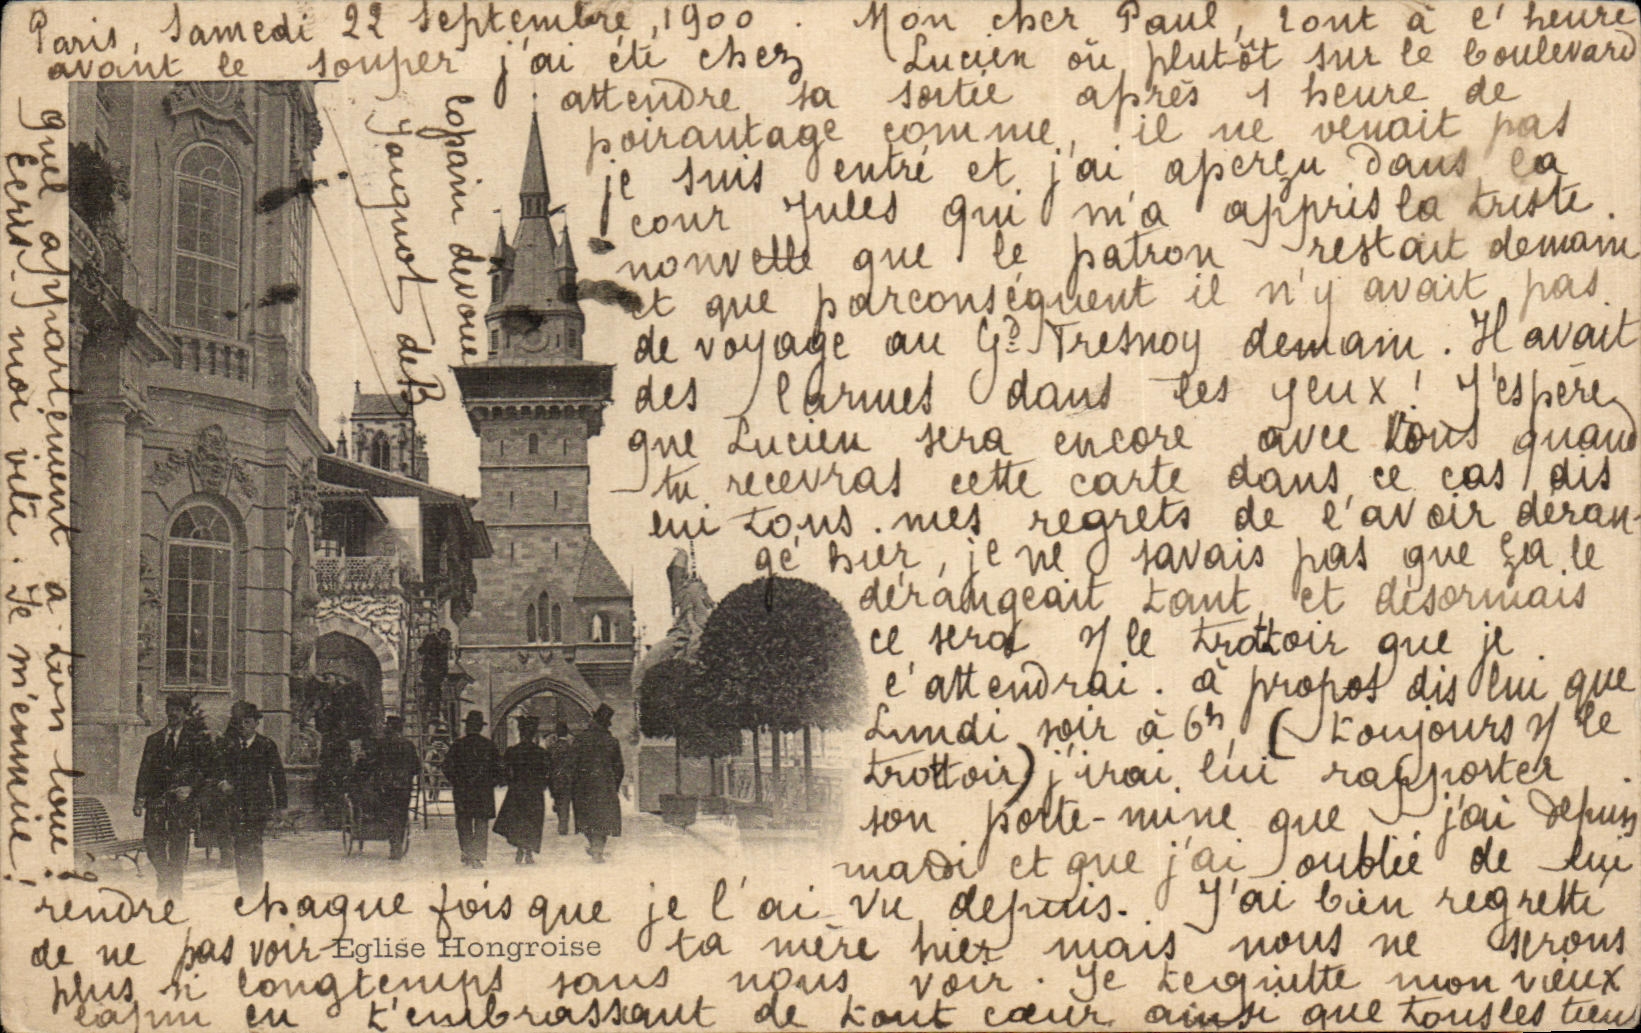 Paris, Samedi 22 Septembre, 1900. Mon cher Paul, tout à l'heure
avant le souper j'ai été chez Lucien ou plutôt sur le boulevard
attendre sa sortie après 1 heure de
poirautage comme, il ne venait pas
je suis entré et j'ai aperçu dans la
cour Jules qui m'a appris la triste
nouvelle que le patron restait demain
et que parconséquent il n'y avait pas
de voyage au Gd Fresnoy demain. Il avait
des larmes dans les yeux! J'espère
que Lucien sera encore avec vous quand
tu recevras cette carte dans ce cas dis
lui tous mes regrets de l'avoir déran-
gé hier, je ne savais pas que ça le
dérangeait tant et désormais
ce sera le trottoir que je
l'attendrai. à propos dis lui que
Lundi soir à 6h, (toujours le
trottoir) j'irai lui rapporter
son porte-mine que j'ai depuis
mardi et que j'ai oublié de lui
rendre chaque fois que je l'ai vu depuis. J'ai bien regretté
de ne pas voir ta mère hier mais nous ne serons
plus si longtemps sans nous voir. Je te quitte mon vieux
copain en t'embrassant de tout cœur ainsi que tous les tiens
copain dévoué
de B
quel appartement a-t-on loué?
Ecris-moi vite. Je m'ennuie!
Eglise Hongroise